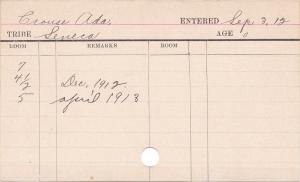 Crouse Ada. ENTERED Sep. 3, 12
TRIBE Seneca AGE
ROOM REMARKS ROOM
7
4½ Dec. 1912
5 April 1913